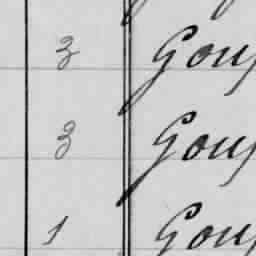 3 Goup
3 Goup
1 Goup